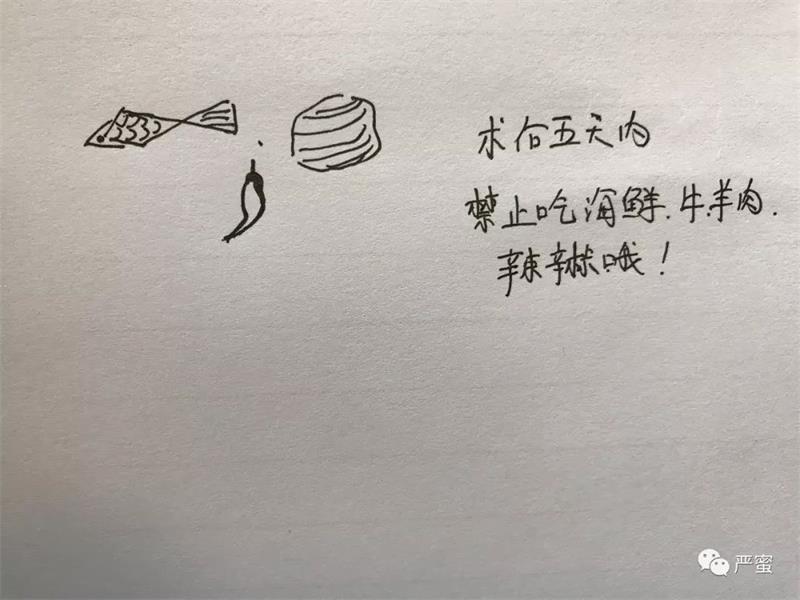 术后五天内
禁止吃海鲜、牛羊肉、
辣辣哦!
严蜜